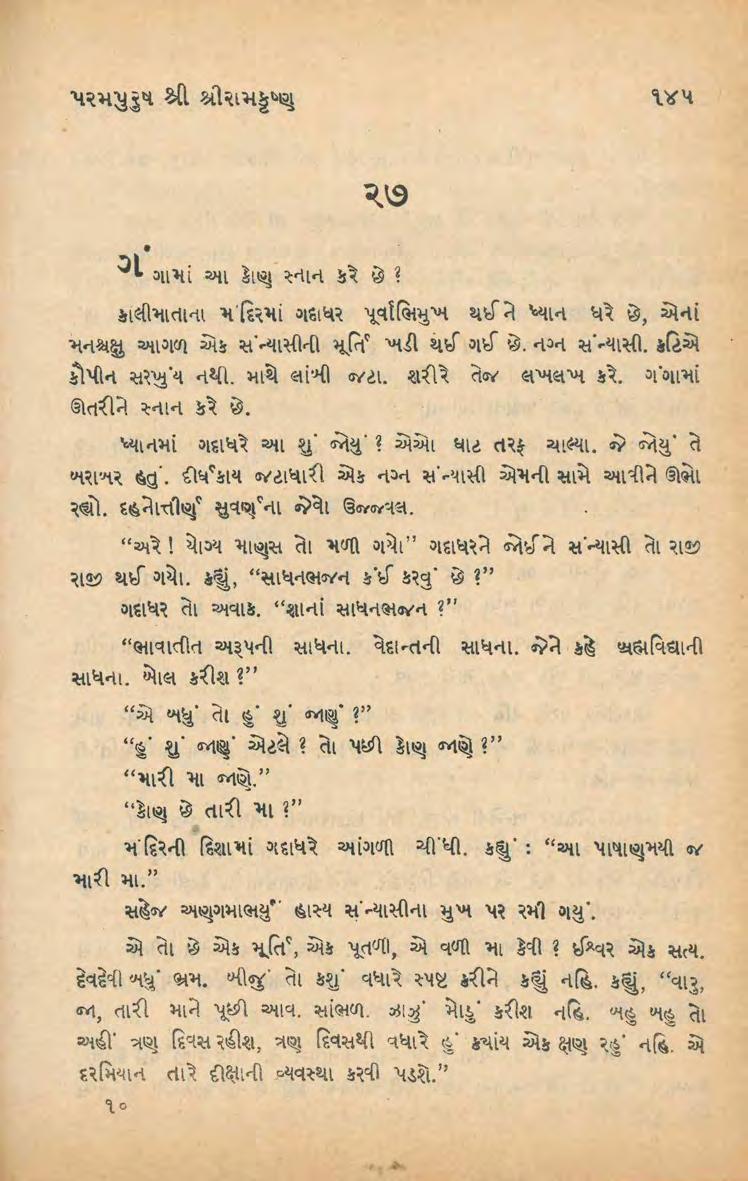 પરમપુરુષ શ્રી શ્રીરામકૃષ્ણ ૧૪૫
૨૭
ગંગામાં આ કોણ સ્નાન કરે છે ?
કાલીમાતાના મંદિરમાં ગદાધર પૂર્વાભિમુખ થઈને ધ્યાન ધરે છે, એનાં
મનશ્ચક્ષુ આગળ એક સંન્યાસીની મૂર્તિ ખડી થઈ ગઈ છે. નગ્ન સંન્યાસી. કટિએ
કૌપીન સરખુંય નથી. માથે લાંબી જટા. શરીરે તેજ લખલખ કરે. ગંગામાં
ઊતરીને સ્નાન કરે છે.
ધ્યાનમાં ગદાધરે આ શું જોયું ? એઓ ઘાટ તરફ ચાલ્યા. જે જોયું તે
બરાબર હતું. દીર્ઘકાય જટાધારી એક નગ્ન સંન્યાસી એમની સામે આવીને ઊભો
રહ્યો. દહનોત્તીર્ણ સુવર્ણના જેવો ઉજ્જવલ.
“અરે ! યોગ્ય માણસ તો મળી ગયો” ગદાધરને જોઈને સંન્યાસી તો રાજી
રાજી થઈ ગયો. કહ્યું, “સાધનભજન કંઈ કરવું છે ?”
ગદાધર તો અવાક. “શાનાં સાધનભજન ?”
“ભાવાતીત અરૂપની સાધના. વેદાન્તની સાધના. જેને કહે બ્રહ્મવિદ્યાની
સાધના. બોલ કરીશ ?”
“એ બધું તો હું શું જાણું ?”
“હું શું જાણું એટલે ? તો પછી કોણ જાણે ?”
“મારી મા જાણે.”
“કોણ છે તારી મા ?”
મંદિરની દિશામાં ગદાધરે આંગળી ચીંધી. કહ્યું : “આ પાષાણમયી જ
મારી મા.”
સહેજ અણગમાભર્યું હાસ્ય સંન્યાસીના મુખ પર રમી ગયું.
એ તો છે એક મૂર્તિ, એક પૂતળી, એ વળી મા કેવી ? ઈશ્વર એક સત્ય.
દેવદેવી બધું ભ્રમ. બીજું તો કશું વધારે સ્પષ્ટ કરીને કહ્યું નહિ. કહ્યું, “વારુ,
જા, તારી માને પૂછી આવ. સાંભળ. ઝાઝું મોડું કરીશ નહિ. બહુ બહુ તો
અહીં ત્રણ દિવસ રહીશ, ત્રણ દિવસથી વધારે હું ક્યાંય એક ક્ષણ રહું નહિ. એ
દરમિયાન તારે દીક્ષાની વ્યવસ્થા કરવી પડશે.”
૧૦